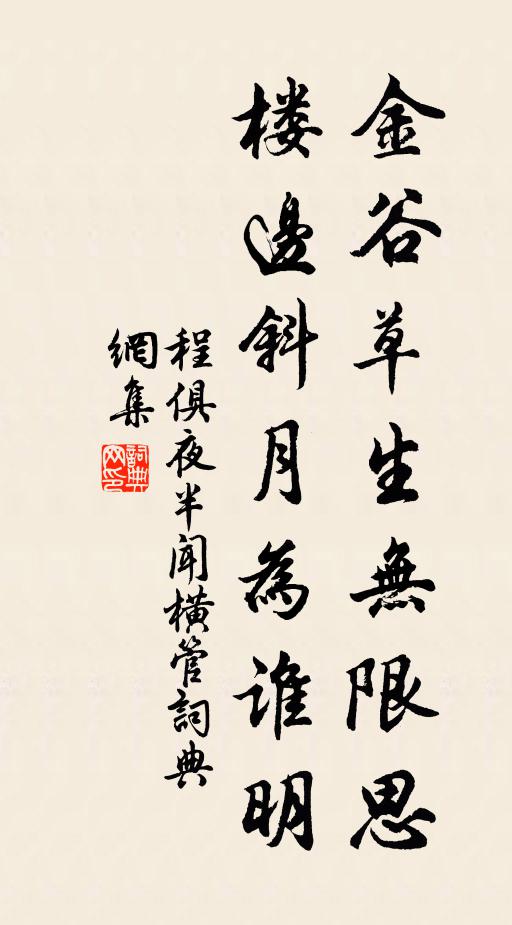 金谷草生無限思
楼邊斜月為誰明
程俱夜半聞横管詞典
網集
詞典网印